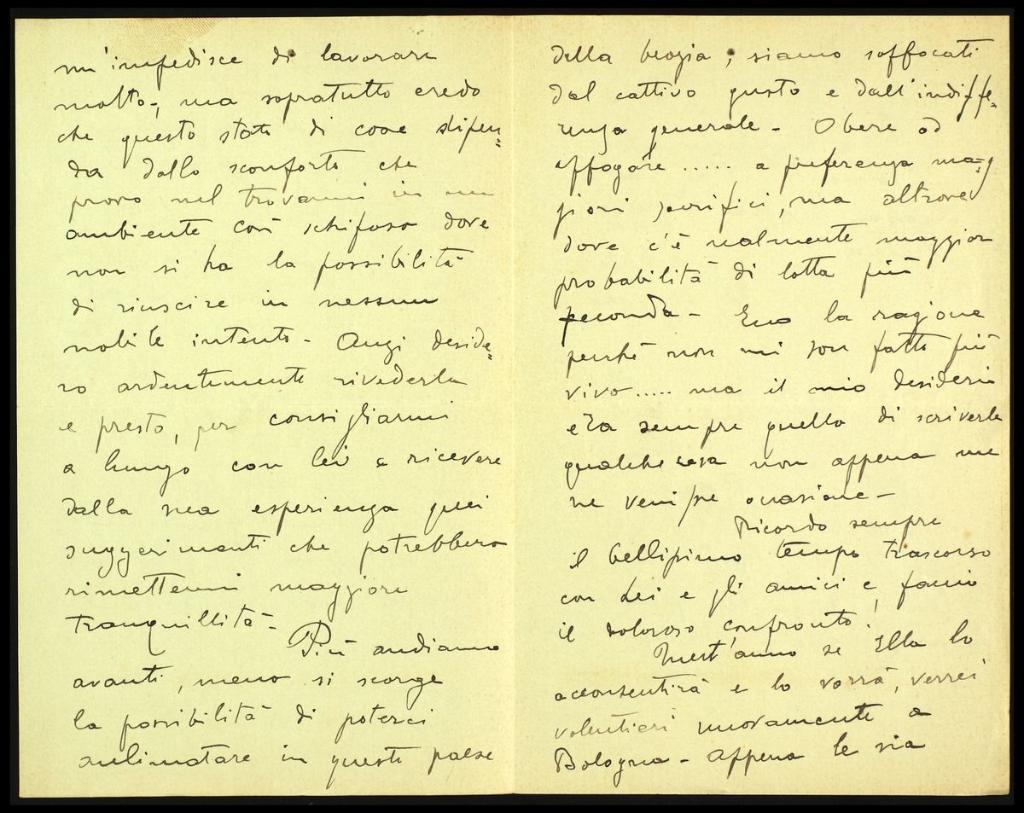 m'impedisce di lavorare
molto; ma sopratutto credo
che questo stato di cose dipen=
da dallo sconforto che
provo nel trovarmi in un
ambiente così schifoso dove
non si ha la possibilità
di riuscire in nessun
nobile intento - Anzi deside=
ro ardentemente rivederla
e presto, per consigliarmi
a lungo con lei e ricevere
dalla sua esperienza quei
suggerimenti che potrebbero
rimettermi maggiore
tranquillità -
Più andiamo
avanti, meno si scorge
la possibilità di poterci
in questo paese
della ; siamo soffocati
dal cattivo gusto e dall'indiffe=
renza generale - O bere od
affogare ..... a preferenza mag=
giori sacrifici, ma altrove
dove c'è realmente maggior
probabilità di lotta più
feconda - Ecco la ragione
perché non mi son fatto più
vivo ..... ma il mio desiderio
era sempre quello di scriverle
qualche cosa non appena me
ne venisse occasione -
Ricordo sempre
il bellissimo tempo trascorso
con Lei e gli amici e, faccio
il doloroso confronto!
Quest'anno se Ella lo
acconsentirà e lo vorrà, verrei
volentieri nuovamente a
Bologna - appena le sia